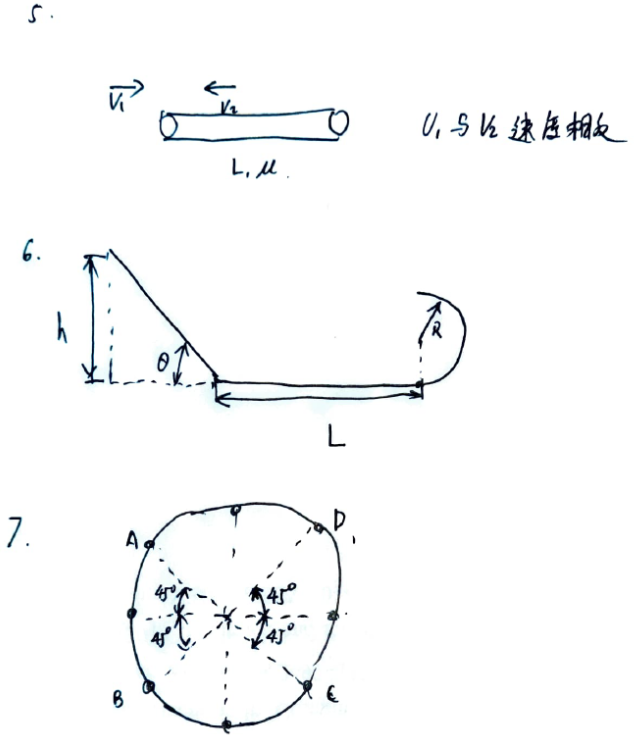 5.
V₁
V₂
L, μ.
V₁与V₂速度相反
6.
h
θ
R
L
7.
A
D
45° 45°
45° 45°
B
C